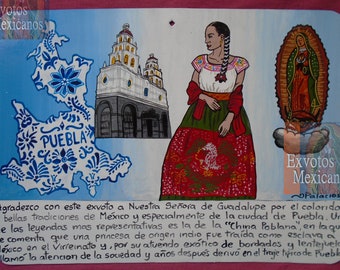 Exvotos
Mexicanos
PUEBLA
Exvotos
Mexicanos
Palacios
agradezco con este exvoto a Nuestra Señora de Guadalupe por el colorido
bellas tradiciones de México y especialmente de la ciudad de Puebla. Un
las leyendas mas representativas es la de la "China Poblana", en la que
se comenta que una princesa de origen indio fue traida como esclava a
México en el virreinato y, por su atuendo exótico de bordados y lentejuelas
llamo la atencion de la sociedad y años despues derivo en el traje tipico de Puebla